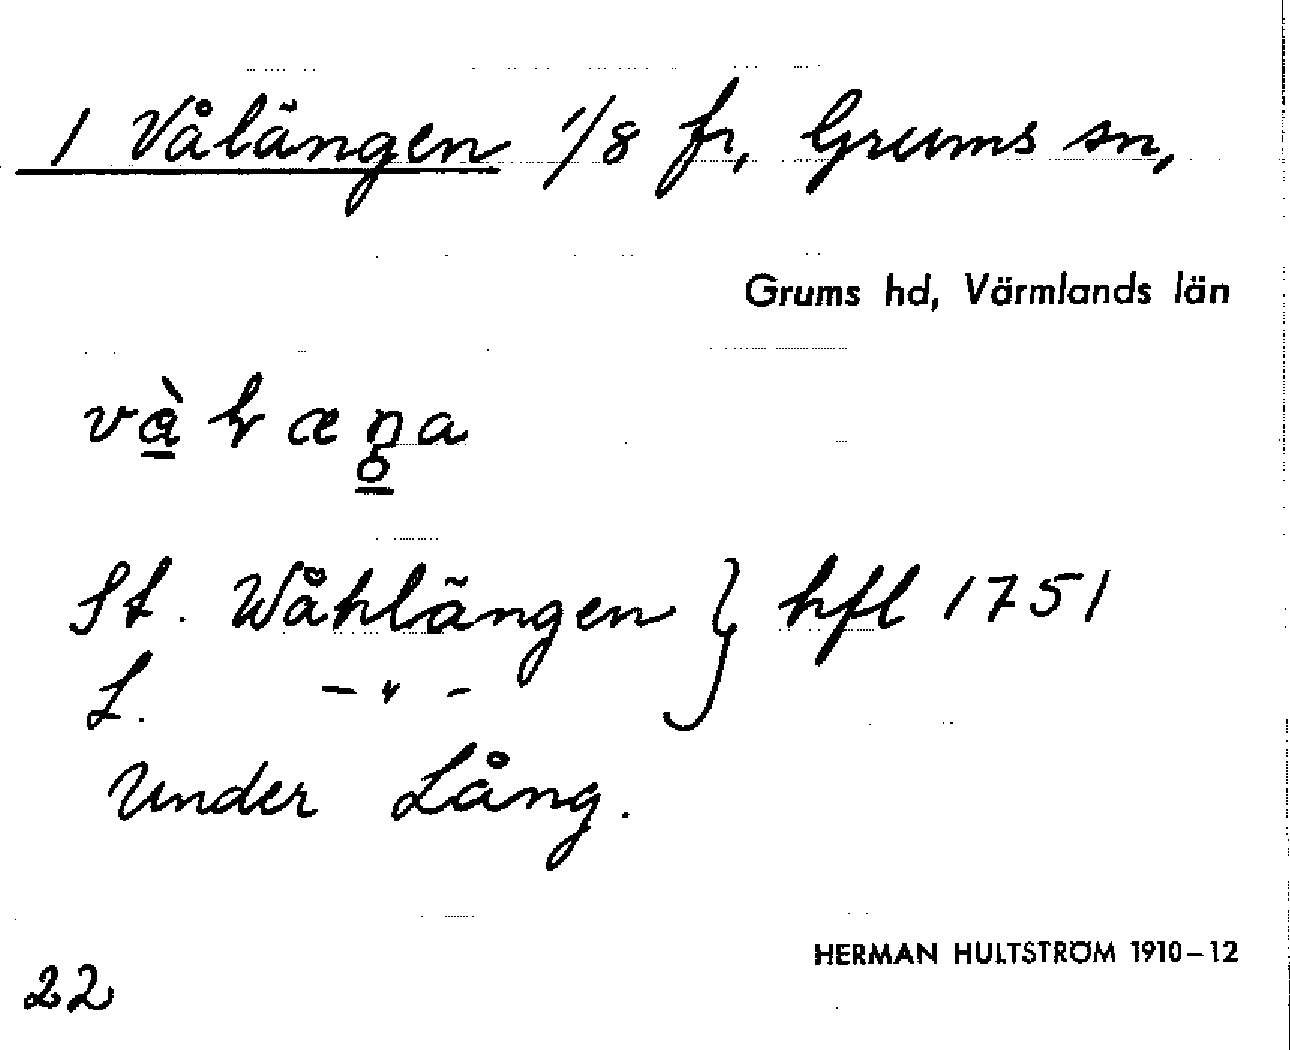 1 Vålängen 1/8 fr, Grums sn,
Grums hd, Värmlands län
St. Wåhlängen } hfl 1751
L. -"-
Under Lång.
HERMAN HULTSTRÖM 1910-12
22